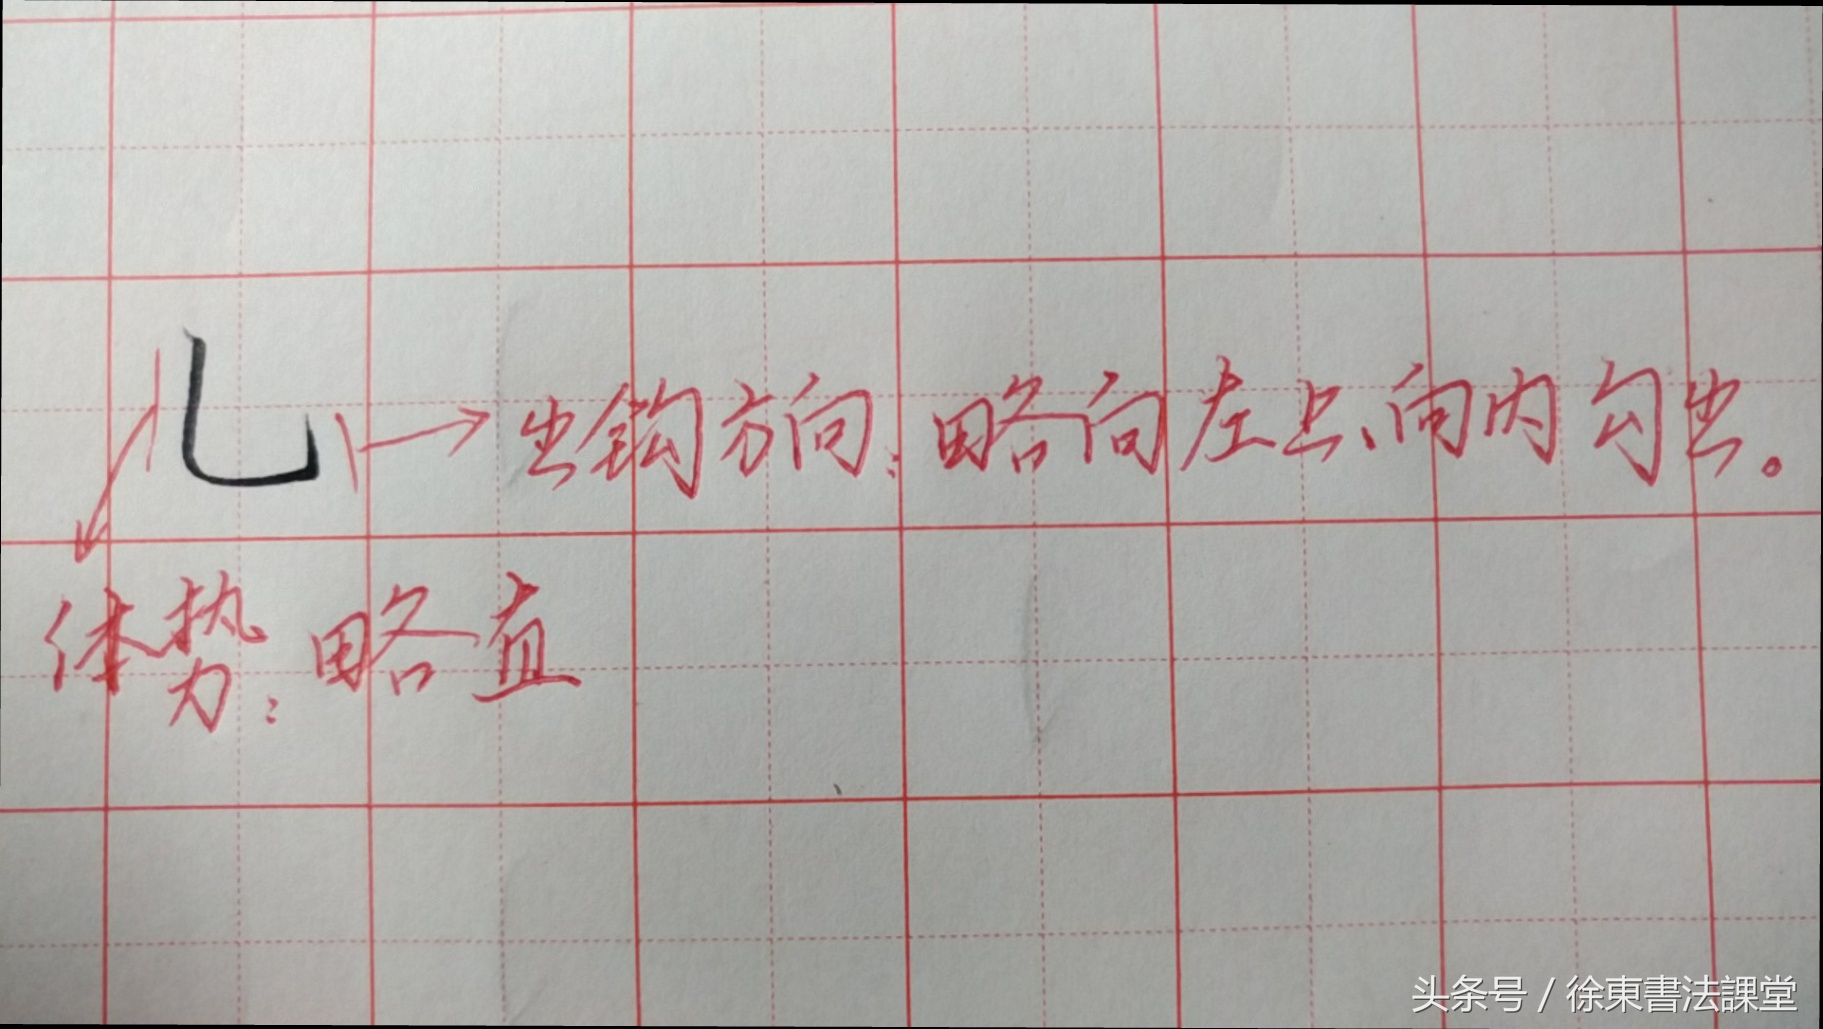 乚
出钩方向：略向左上、向内勾出。
体势：略直
头条号 / 徐東書法課堂